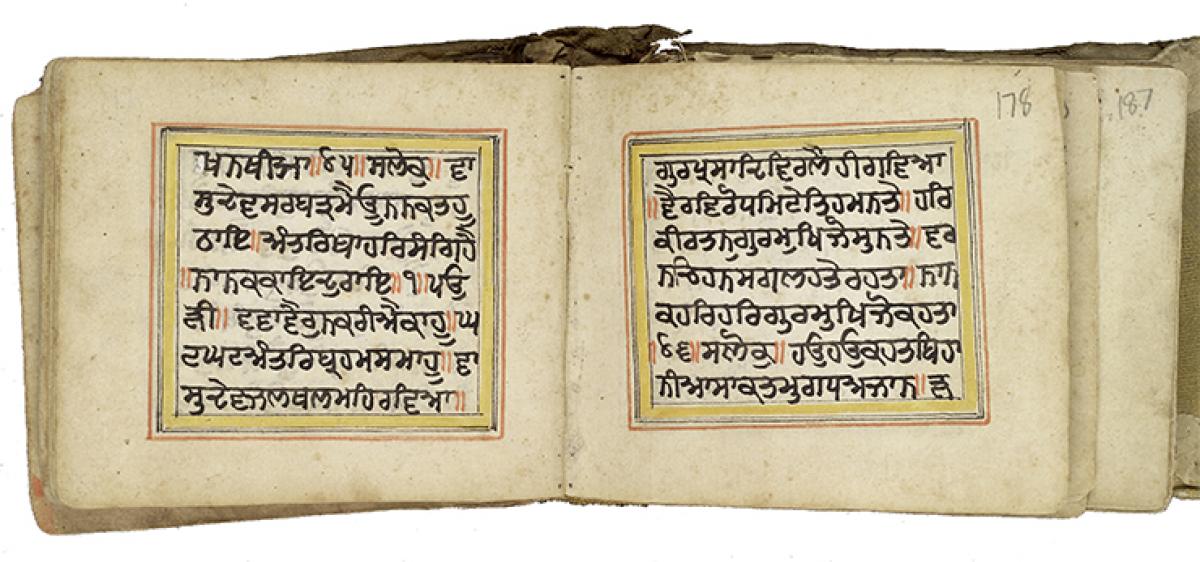 ਧਨਖੀਆ॥੪੫॥ਸਲੋਕੁ॥ਵਾ
ਸੁਦੇਵਸਰਬਤ੍ਰਮੈਊਨਨਕਤਹੂ
ਠਾਇ॥ਅੰਤਰਿਬਾਹਰਿਸੰਗਿਹੈ
॥ਨਾਨਕਕਾਇਦੁਰਾਇ॥੧॥ਪਉ
ੜੀ॥ਵਵਾਵੈਰੁਨਕਰੀਐਕਾਹੂ॥ਘ
ਟਘਟਅੰਤਰਿਬ੍ਰਹਮਸਮਾਹੂ॥ਵਾ
ਸੁਦੇਵਜਲਥਲਮਹਿਰਵਿਆ॥
178
187
ਗੁਰਪ੍ਰਸਾਦਿਵਿਰਲੈਹੀਗਵਿਆ
॥ਵੈਰਵਿਰੋਧਮਿਟੇਤਿਹਮਨਤੇ॥ਹਰਿ
ਕੀਰਤਨੁਗੁਰਮੁਖਿਜੋਸੁਨਤੇ॥ਵਰ
ਨਚਿਹਨਸਗਲਹਤੇਰਹਤਾ॥ਨਾਨ
ਕਹਰਿਹਰਿਗੁਰਮੁਖਿਜੋਕਹਤਾ
॥੪੬॥ਸਲੋਕੁ॥ਹਉਹਉਕਰਤਬਿਹਾ
ਨੀਆਸਾਕਤਮੁਗਧਅਜਾਨ॥ੜ